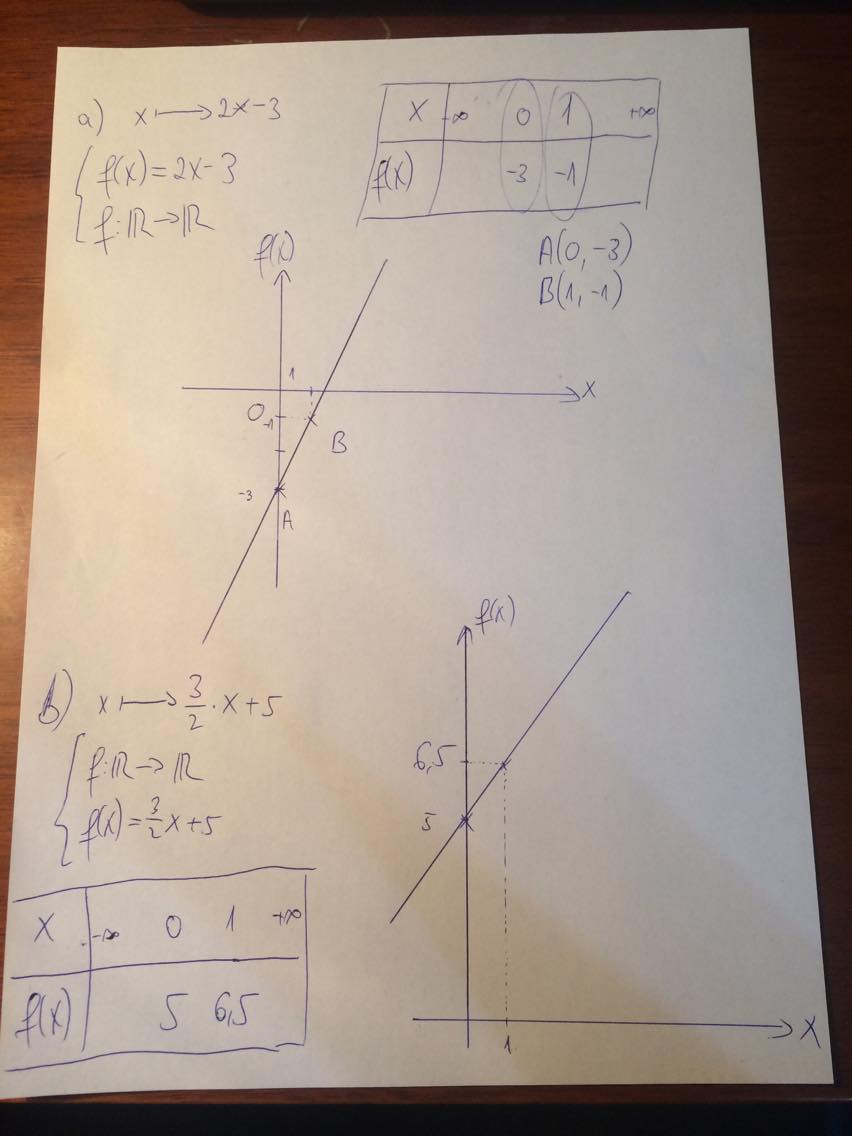 a) x ⟼ 2x-3
f(x)=2x-3
f:ℝ→ℝ
x -∞ 0 1 +∞
f(x) -3 -1
A(0,-3)
B(1,-1)
f(x)
1
x
0
-1
B
-3
A
b) x ⟼ 3/2·x+5
f:ℝ→ℝ
f(x)=3/2x+5
x -∞ 0 1 +∞
f(x) 5 6,5
f(x)
6,5
5
1
x